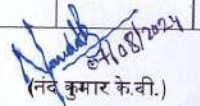 07/08/2024
(नंद कुमार के.वी.)